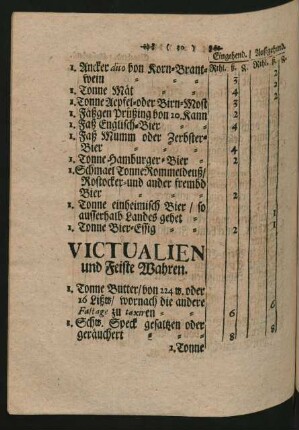 Eingehend. / Außgehend.
Rthl. ß. Rthl. ß.
1. Ancker dito von Korn-Brant-
wein 3 2
1. Tonne Mät 4 2
1. Tonne Aepfel-oder Birn-Most 2
1. Fäßgen Prüßing von 20. Kann 2
1. Faß Englisch-Bier 4
1. Faß Mumm oder Zerbster-
Bier 4
1. Tonne Hamburger-Bier 2
1. Schmael Tonne Rommeldeuß/
Rostocker-und ander frembd
Bier 2
1. Tonne einheimisch Bier / so
ausserhalb Landes gehet
1. Tonne Bier-Essig
VICTUALIEN
und Feiste Wahren.
1. Tonne Butter/ von 224 w. oder
16 Lißw/ wornach die andere
Fastage zu taxiren 6
1. Schw. Speck gesaltzen oder
geräuchert 8
1. Tonne